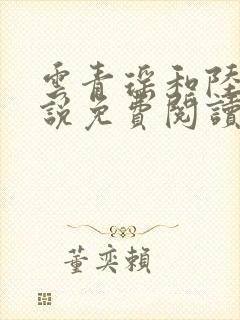 雲青瑤和陸
說免費閱讀
董奕賴